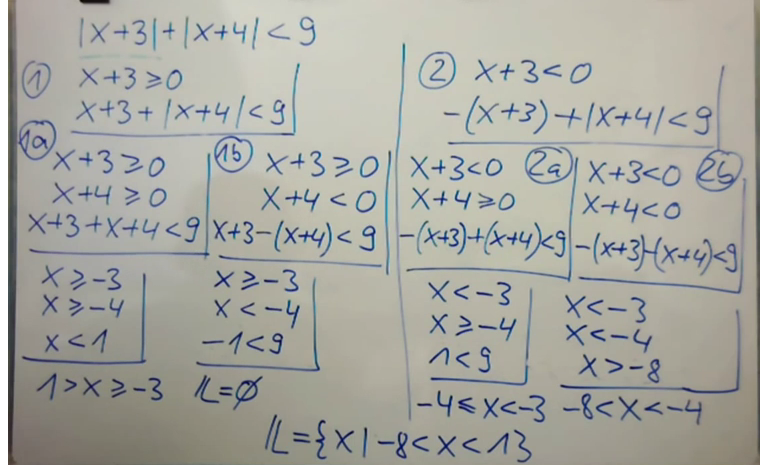 |x+3|+|x+4|<9
① x+3≥0
x+3+|x+4|<9
1a x+3≥0
x+4≥0
x+3+x+4<9
x≥-3
x≥-4
x<1
1>x≥-3
1b x+3≥0
x+4<0
x+3-(x+4)<9
x≥-3
x<-4
-1<9
IL=∅
② x+3<0
-(x+3)+|x+4|<9
x+3<0 2a
x+4≥0
-(x+3)+(x+4)<9
x<-3
x≥-4
1<9
-4≤x<-3
x+3<0 2b
x+4<0
-(x+3)-(x+4)<9
x<-3
x<-4
x>-8
-8<x<-4
IL={x|-8<x<1}